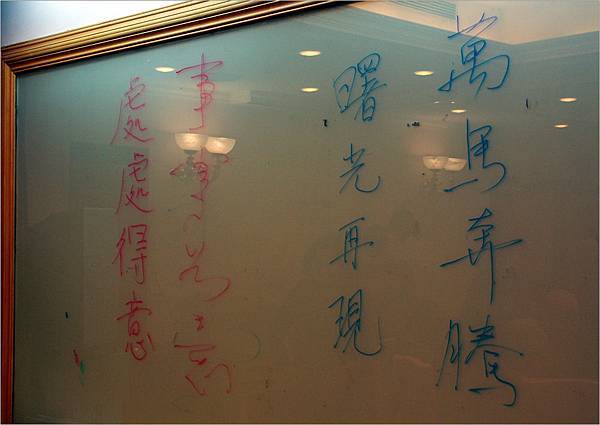 萬馬奔騰
曙光再現
事事
處處得意